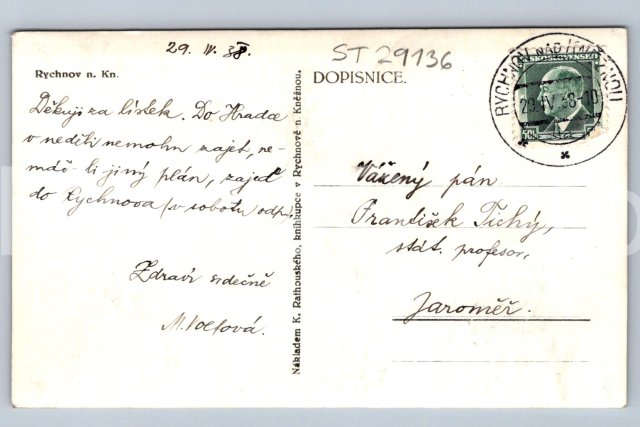 29. IV. 38.
ST 29136
Rychnov n. Kn.
DOPISNICE.
Děkuji za lístek. Do Hradce
v neděli nemohu zajet, ne-
máš-li jiný plán, zajeď
do Rychnova (v sobotu odp.)
Zdraví srdečně
M. Voltová.
Nákladem K. Rathouského, knihkupce v Rychnově n Kněžnou.
RYCHNOV NAD KNĚŽNOU
29. IV 38 - 10
ČESKOSLOVENSKO
50h
Vážený pán
František Tichý,
stát. profesor,
Jaroměř.